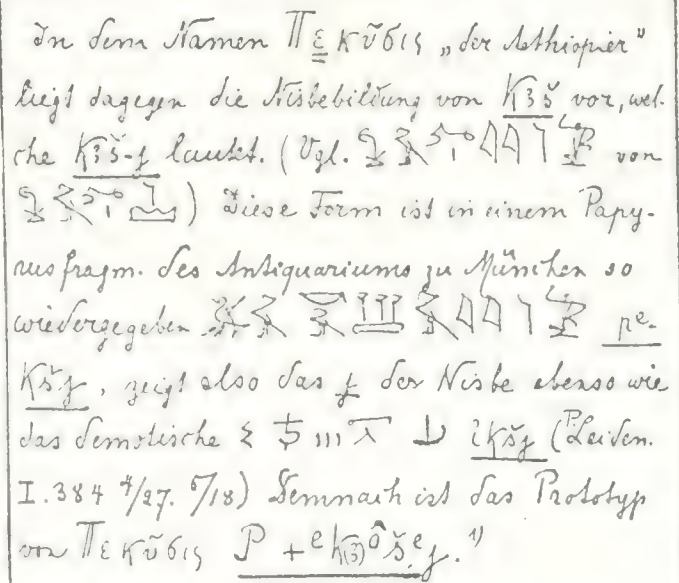 In dem Namen Πεκῦσις „der Aethiopier"
liegt dagegen die Nisbebildung von K3š vor, wel-
che K3š-j lautet. (Vgl. von
) Diese Form ist in einem Papy-
rusfragm. des Antiquariums zu München so
wiedergegeben pe-
Kšj, zeigt also das j der Nisbe ebenso wie
das demotische ikšj (P. Leiden.
I. 384 4/27. 6/18) Demnach ist das Prototyp
von Πεκῦσις P + ek(3)ôšej. 1)